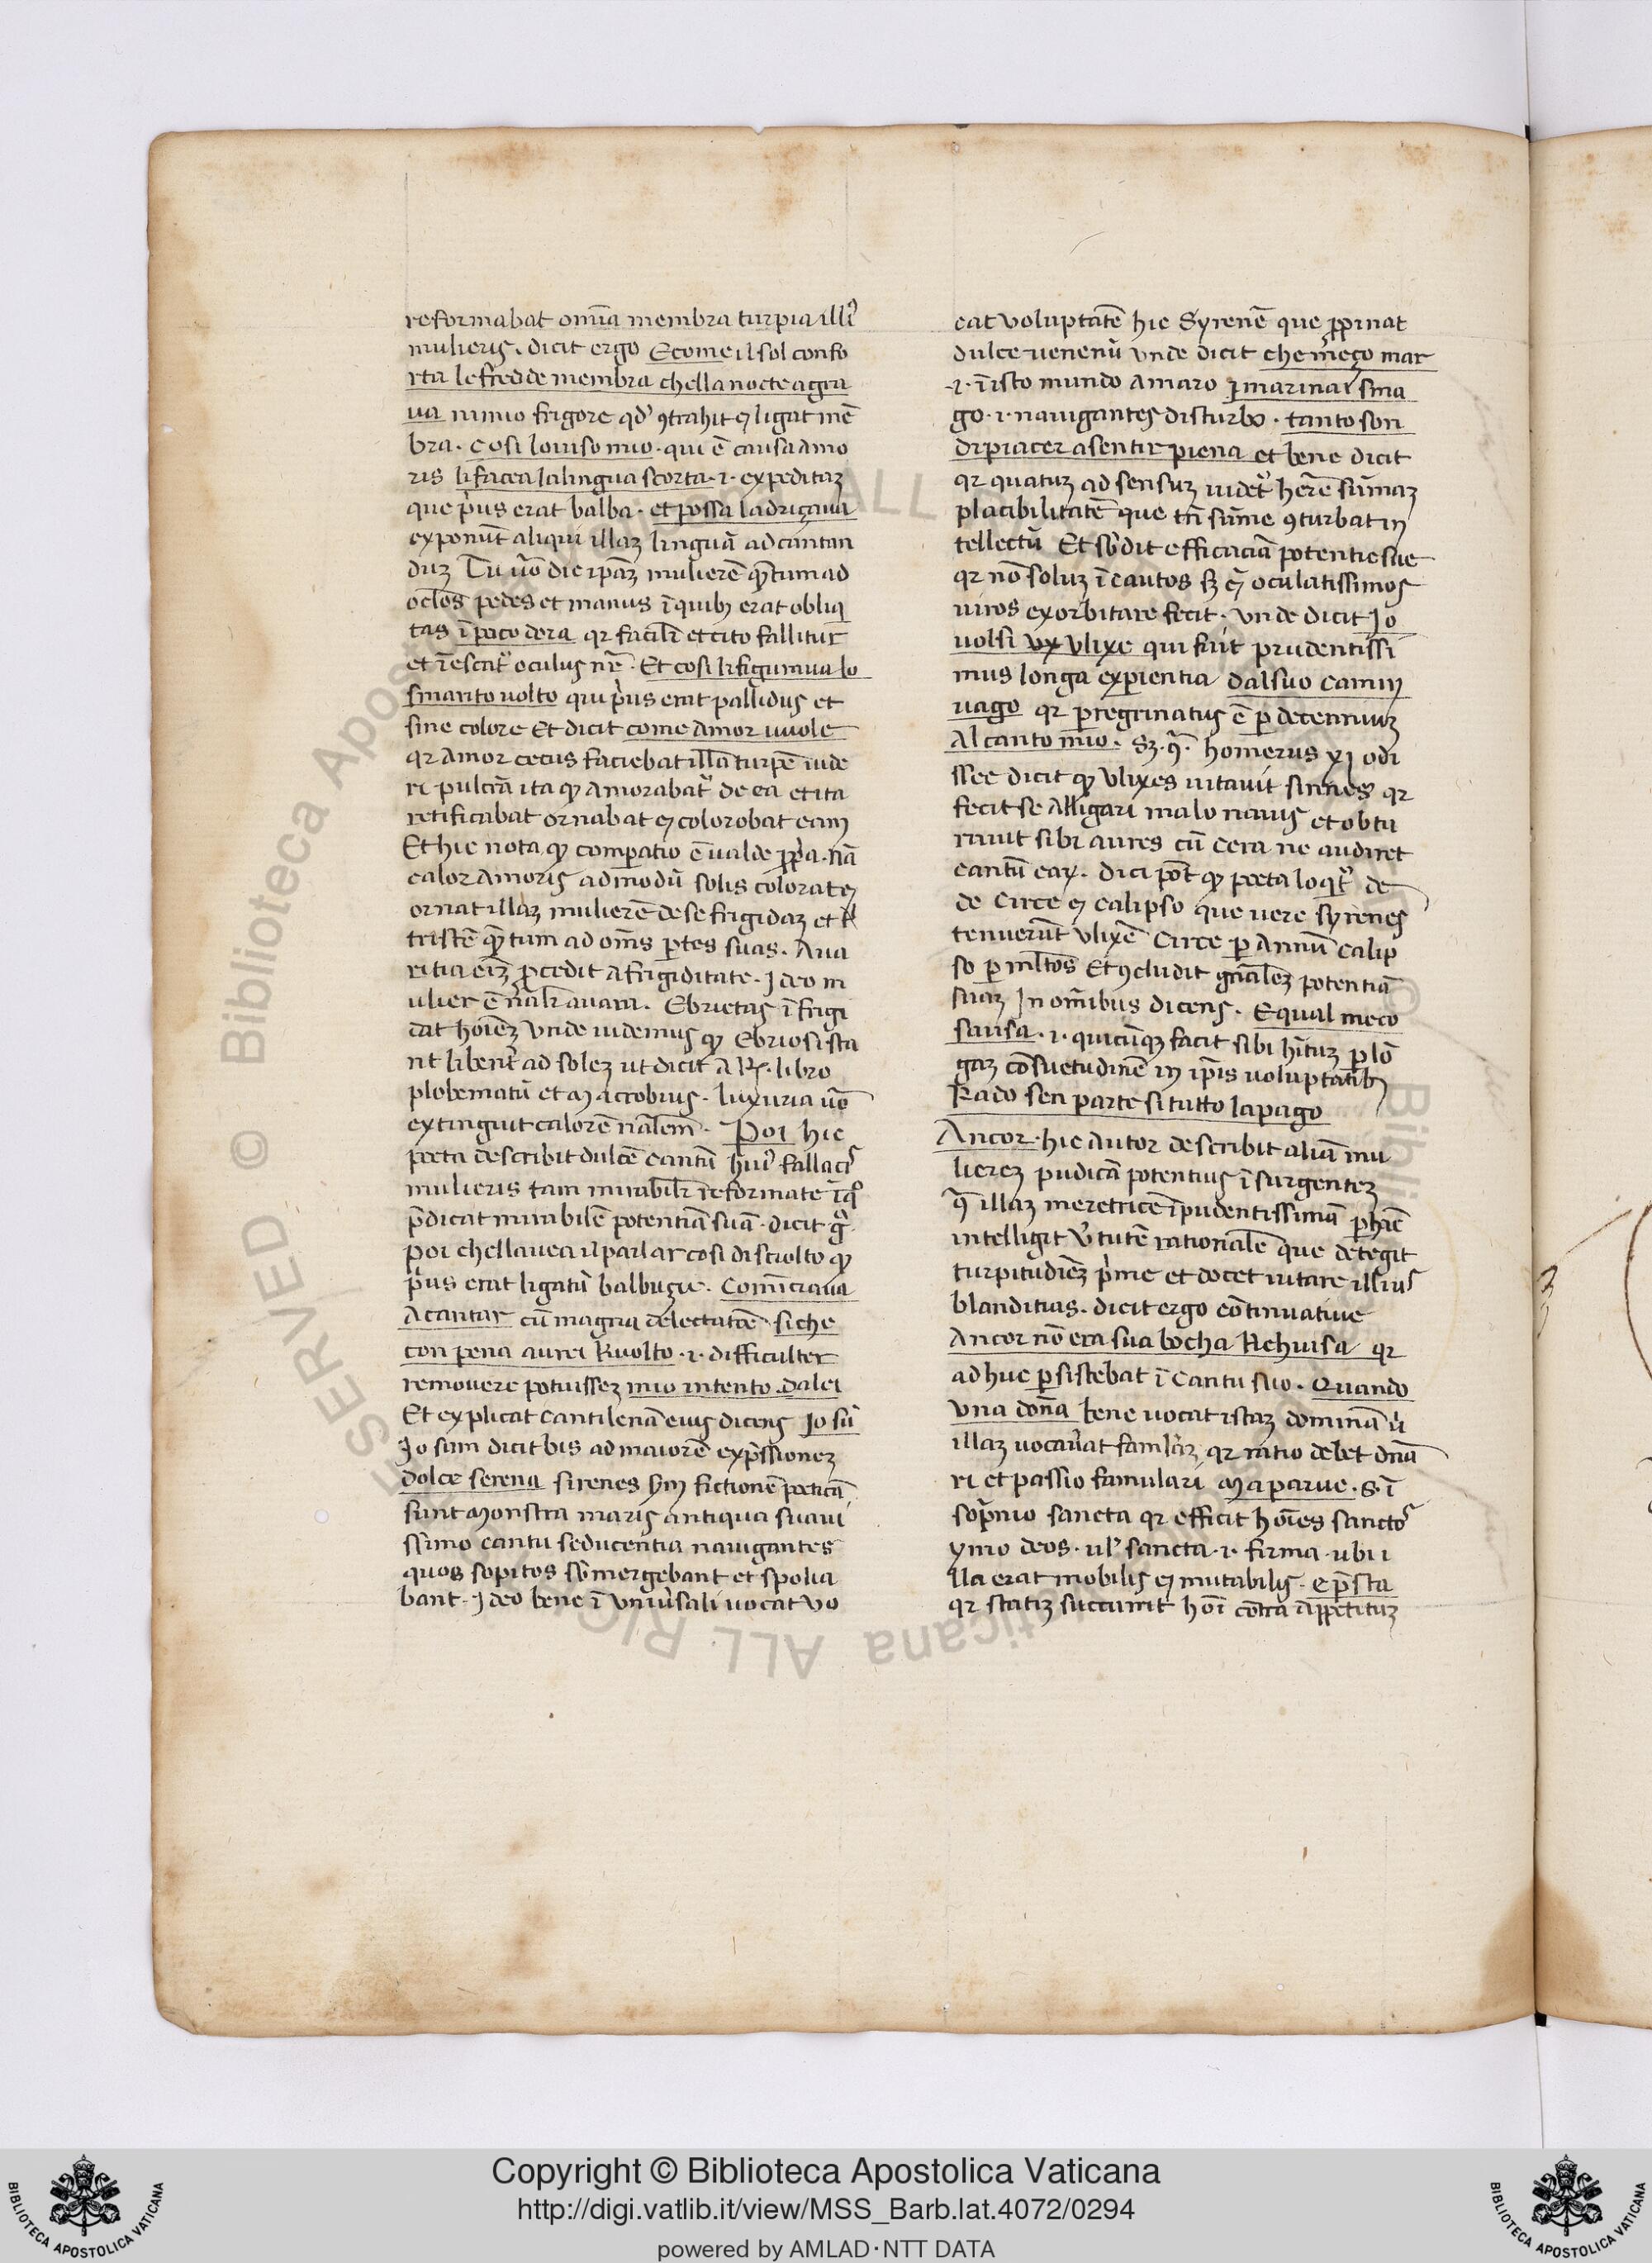 reformabat om̄ia membra turpia illiꝰ
mulieris. dicit ergo Ecome il sol confo
rta le fredde membra che lla nocte agra
ua nimio frigore qd' ꝯtrahit ⁊ ligat mē
bra. Cosi lo uiso mio. qui ē causa amo
ris li facea la lingua scorta .i. expeditaꝫ
que p'us erat balba. et possa la driçaua
exponūt aliqui illaꝫ linguā ad cantan
duꝫ Tu ūo dic ip̄aꝫ mulierē q̄ntum ad
oclōs pedes et manus ī quibꝫ erat obliq
tas ī poco dora qr facilr̄ et cito fallitur
et īescat' oculus nr̄ē. Et cosi li figuraua lo
smarito uolto qui p'us erat pallidus et
sine colore Et dicit come amor uuole
qr Amor cecus faciebat illā turpē uide
ri pulcrā ita qꝫ amorabat' de ea et ita
retificabat ornabat ⁊ colorobat eam
Et hic nota qꝫ comꝑatio ē ualde ꝓp'a. nā
calor amoris ad modū solis colorat ⁊
ornat illaꝫ mulierē de se frigidaꝫ et
tristē q̄ntum ad om̄s ꝑtes suas. Aua
ritia eīꝫ ꝓcedit a frigiditate. Ideo m
ulier ē nālr̄ auara. Ebrietas īfrigi
dat hoīeꝫ Vnde uidemus qꝫ Ebriosi sta
nt libent' ad soleꝫ ut dicit AR. libro
plobematū et Macrobius. luxuria ūo
extinguit calorē nālem. Poi hic
poeta describit dulcē cantū huiꝰ fallacis
mulieris tam mirabilr̄ reformate ī qͦ
p̄dicat mirabilē potentiā suā. dicit g°.
Poi chellauea il parlar cosi disciolto qꝫ
p'us erat ligatū balbuçie. Comīciaua
A cantar cū magna delectatōe. si che
con pena aurei Riuolto .i. difficulter
remouere potuisseꝫ mio intento. da lei
Et explicat cantilenā eius dicens Io sū
Io sum dicit bis ad maiorē exp̄ssioneꝫ
dolce serena sirenes s'm fictionē poeticā
sunt Monstra maris antiqua suaui
ssimo cantu seducentia nauigantes
quos sopitos s'bmergebant et spolia
bant. Ideo bene ī vniu'sali uocat vo
cat voluptatē hic Syrenē que ꝓpinat
dulce uenenū vnde dicit che m̄eço mar
.i. ī isto mundo amaro i marinai sma
go .i. nauigantes disturbo. tanto son
di piacer a sentir piena et bene dicit
qr quatuꝫ ad sensuꝫ uidet' h'ere sūmaꝫ
placibilitatē que tn̄ sūme ꝯturbat in
tellectū Et s'bdit efficaciā potentie sue
qr nō soluꝫ īcautos sꝫ ēt oculatissimos
uiros exorbitare fecit. vnde dicit Io
uolsi vx Vlixe qui fuit prudentissi
mus longa exꝑientia dal suo camin
uago qr ꝑegrinatus ē ꝑ decenniuꝫ
Al canto mio. Sꝫ. q̄. homerus xi odi
ssee dicit qꝫ Vlixes uitauit sirenes qr
fecit se alligari malo nauis et obtu
rauit sibi aures cū cera ne audiret
cantū eaꝝ. dici pōt qꝫ poeta loqt' de
de Circe ⁊ Calipso que uere syrenes
tenuerūt Vlixē Circe ꝑ Annū Calip
so ꝑ mltōs Et ꝯcludit gn̄aleꝫ potentiā
suaꝫ In omībus dicens. Equal meco
sausa .i. quicūqꝫ facit sibi h'ituꝫ ꝑ lō
gaꝫ cōsuetudinē in ip̄is uoluptatibꝫ
Rado sen parte si tutto lapago
Ancor. hic Autor describit aliā mu
liereꝫ pudicā potentius īsurgenteꝫ
q̄ illaꝫ meretricē īpudentissimā ꝑ hāc
intelligit v'tutē rationalē que detegit
turpitudīeꝫ p'me et docet uitare illius
blanditias. dicit ergo cōtinuatiue
Ancor nō era sua bocha Richuisa qr
adhuc ꝑsistebat ī cantu suo. Quando
Vna dōna bene uocat istaꝫ dominā ū
illaꝫ uocau'at famlāꝫ, qr ratio debet dn̄a
ri et passio famulari Ma parue. s. ī
sop̄nio sancta qr efficit hoīes sanctoˢ
ymo deos. ul' sancta .i. firma. ubi i
lla erat mobilis ⁊ mutabilis. e p̄sta
qr statiꝫ succurrit hoī cōtra appetituꝫ
Copyright © Biblioteca Apostolica Vaticana
http://digi.vatlib.it/view/MSS_Barb.lat.4072/0294
powered by AMLAD·NTT DATA